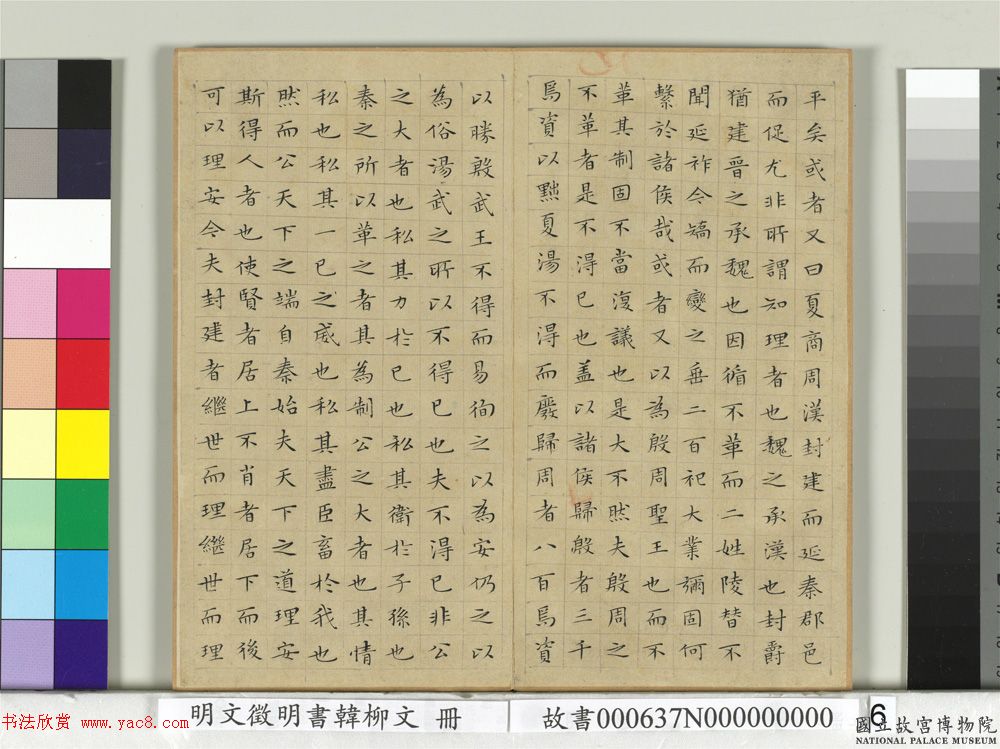 平矣或者又曰夏商周漢封建而延秦郡邑
而促尤非所謂知理者也魏之承漢也封爵
猶建晉之承魏也因循不革而二姓陵替不
聞延祚今矯而變之垂二百祀大業彌固何
繫於諸侯哉或者又以為殷周聖王也而不
革其制固不當復議也是大不然夫殷周之
不革者是不得已也蓋以諸侯歸殷者三千
焉資以黜夏湯不得而廢歸周者八百焉資
以勝殷武王不得而易徇之以為安仍之以
為俗湯武之所以不得已也夫不得已非公
之大者也私其力於已也私其衛於子孫也
秦之所以革之者其為制公之大者也其情
私也私其一已之威也私其盡臣畜於我也
然而公天下之端自秦始夫天下之道理安
斯得人者也使賢者居上不肖者居下而後
可以理安今夫封建者繼世而理繼世而理
明文徵明書韓柳文 冊
故書000637N000000000 6
书法欣赏 www.yac8.com
國立故宮博物院
NATIONAL PALACE MUSEUM